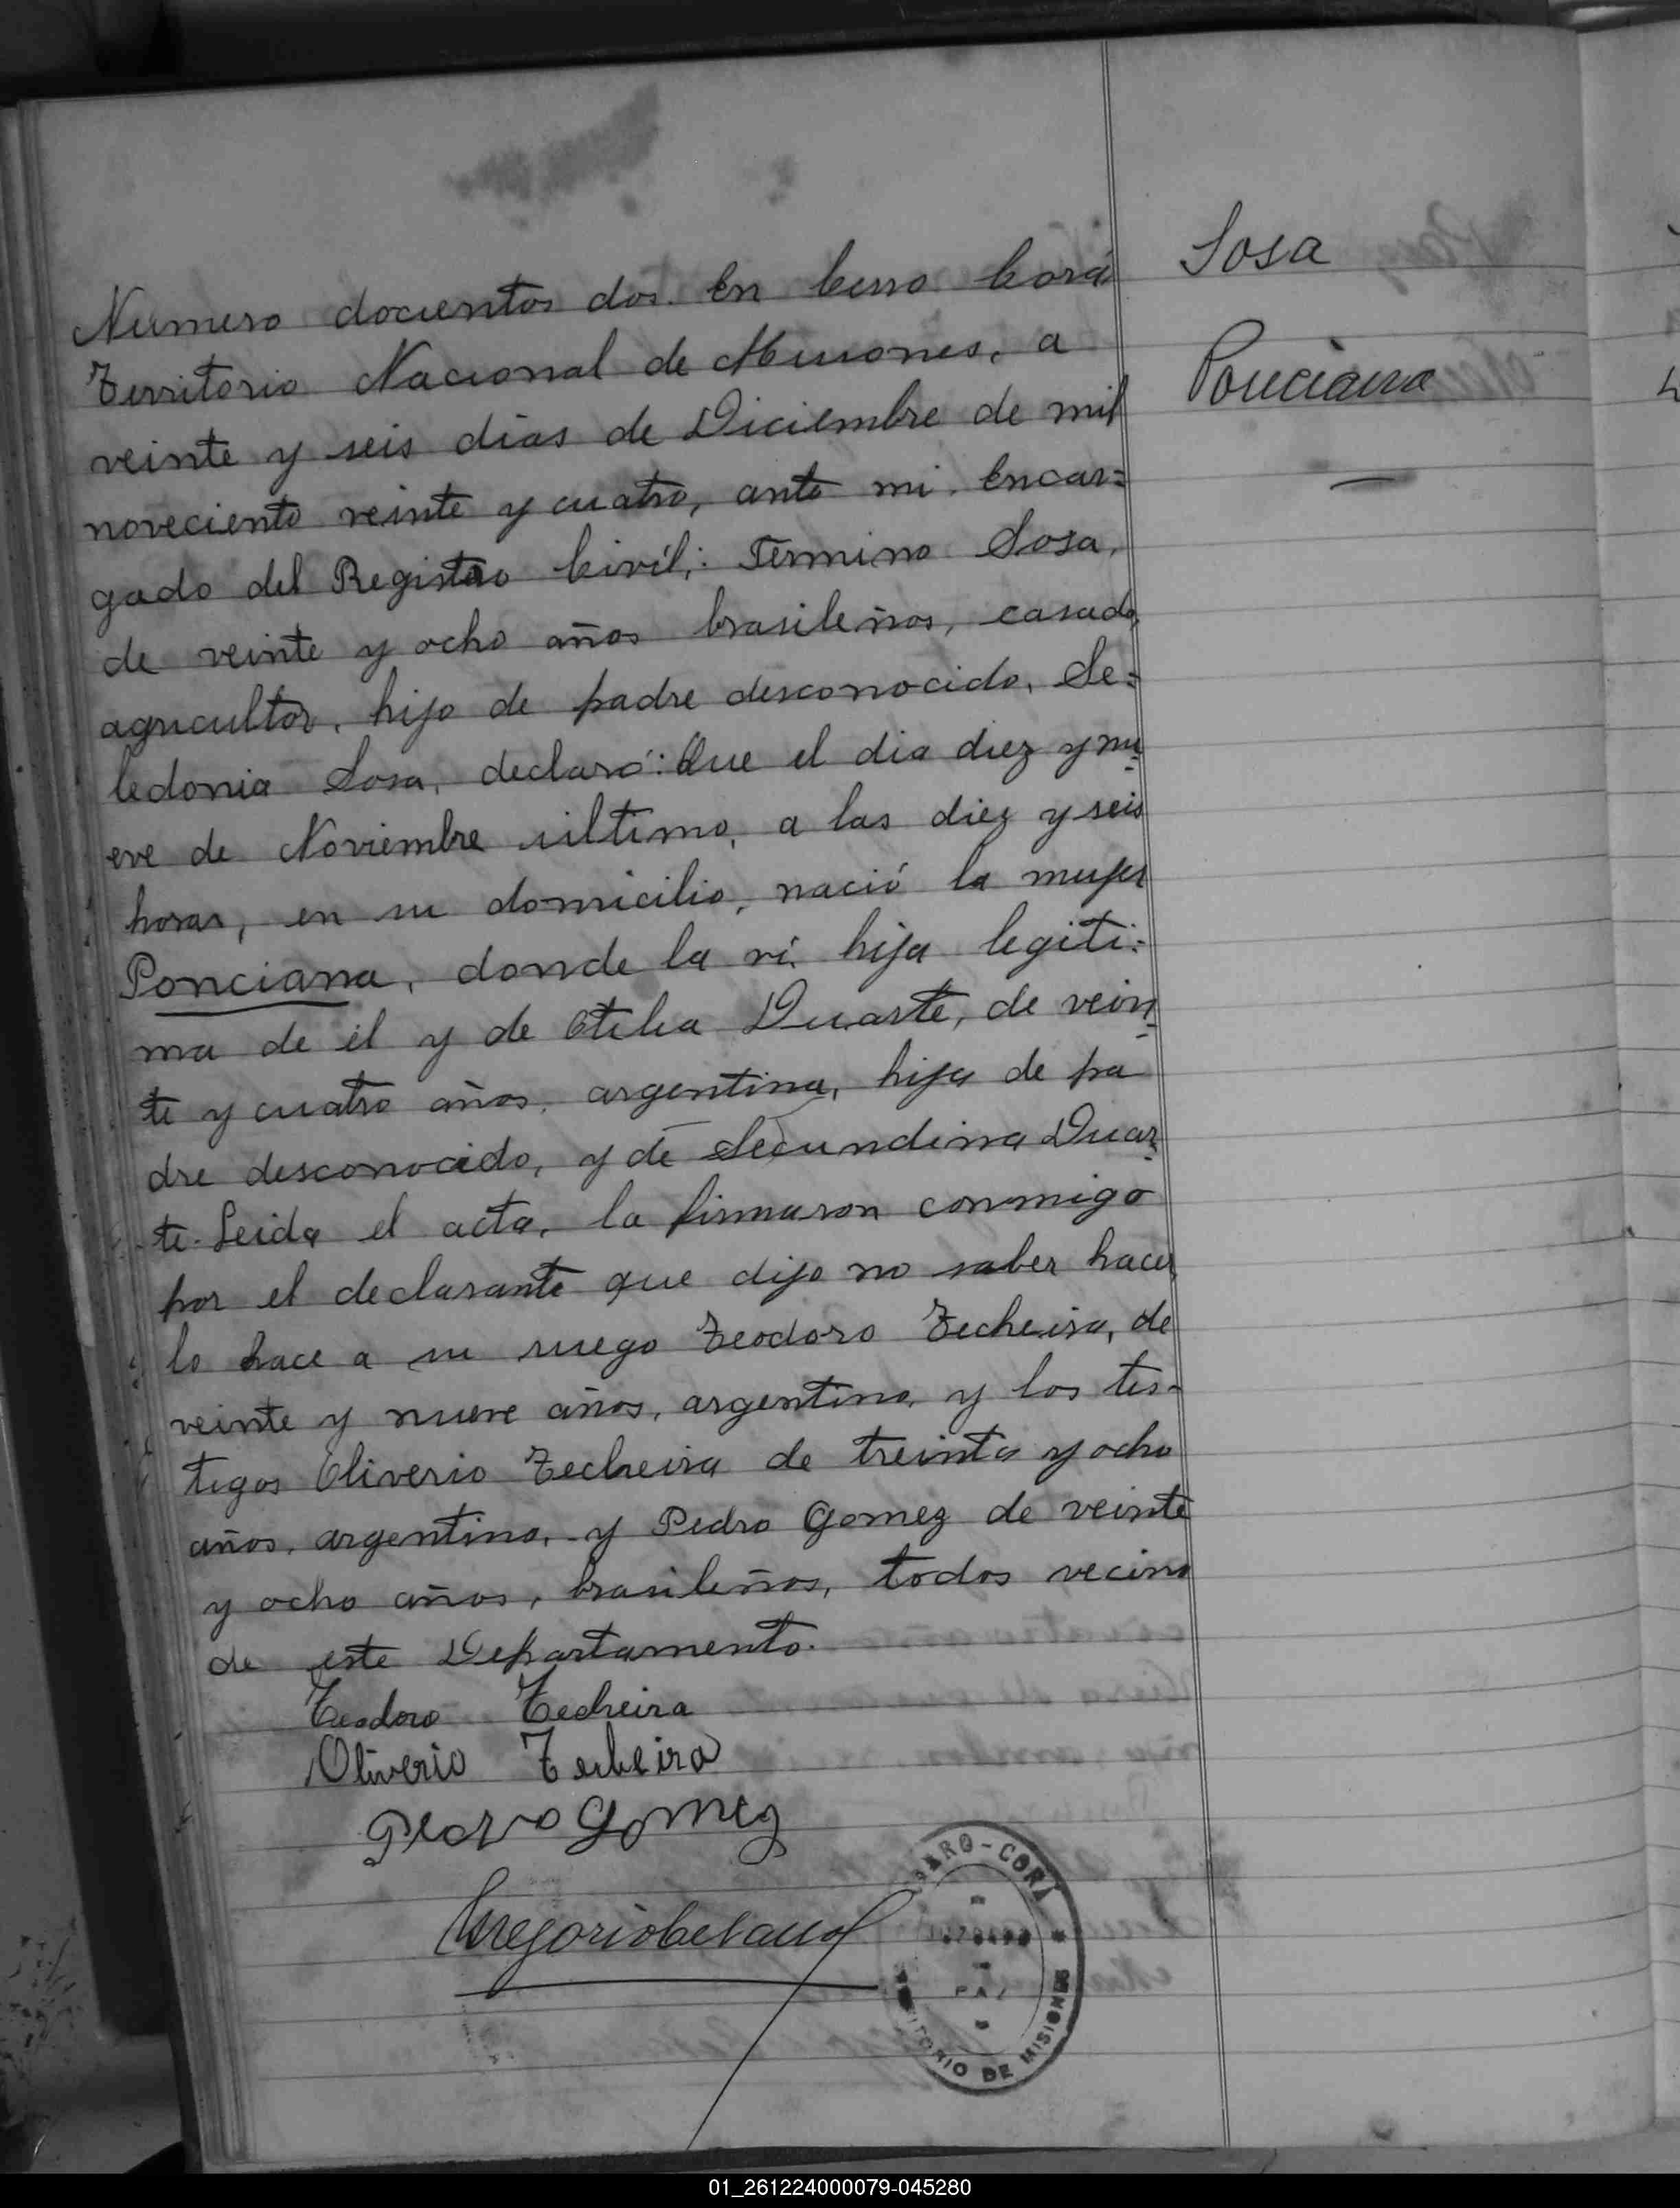 Sosa
Ponciana
Numero docientos dos. En Cerro Corá
Territorio Nacional de Misiones, a
veinte y seis dias de Diciembre de mil
noveciento veinte y cuatro, ante mi. Encar=
gado del Registro Civil;: Termino Sosa,
de veinte y ocho años brasileños, casado,
agricultor, hijo de padre desconocido, Se=
ledonia Sosa, declaró: Que el dia diez y nu
eve de Noviembre último, a las diez y seis
horas, en su domicilio, nació la mujer
Ponciana, donde la vi. hija legiti=
ma de él y de Otilia Duarte, de vein
te y cuatro años, argentina, hija de pa
dre desconocido, y de Secundina Duar
te. Leida el acta, la firmaron conmigo
por el declarante que dijo no saber hacer
lo hace a su ruego Teodoro Techeira, de
veinte y nueve años, argentino, y los tes-
tigos Oliverio Techeira de treinta y ocho
años, argentino, y Pedro Gomez de veinte
y ocho años, brasileños, todos vecino
de este Departamento.
Teodoro Techeira
Oliverio Techeira
Pedro Gomez
Gregorio
CORÁ
PAZ
DE MISIONES
01_261224000079-045280